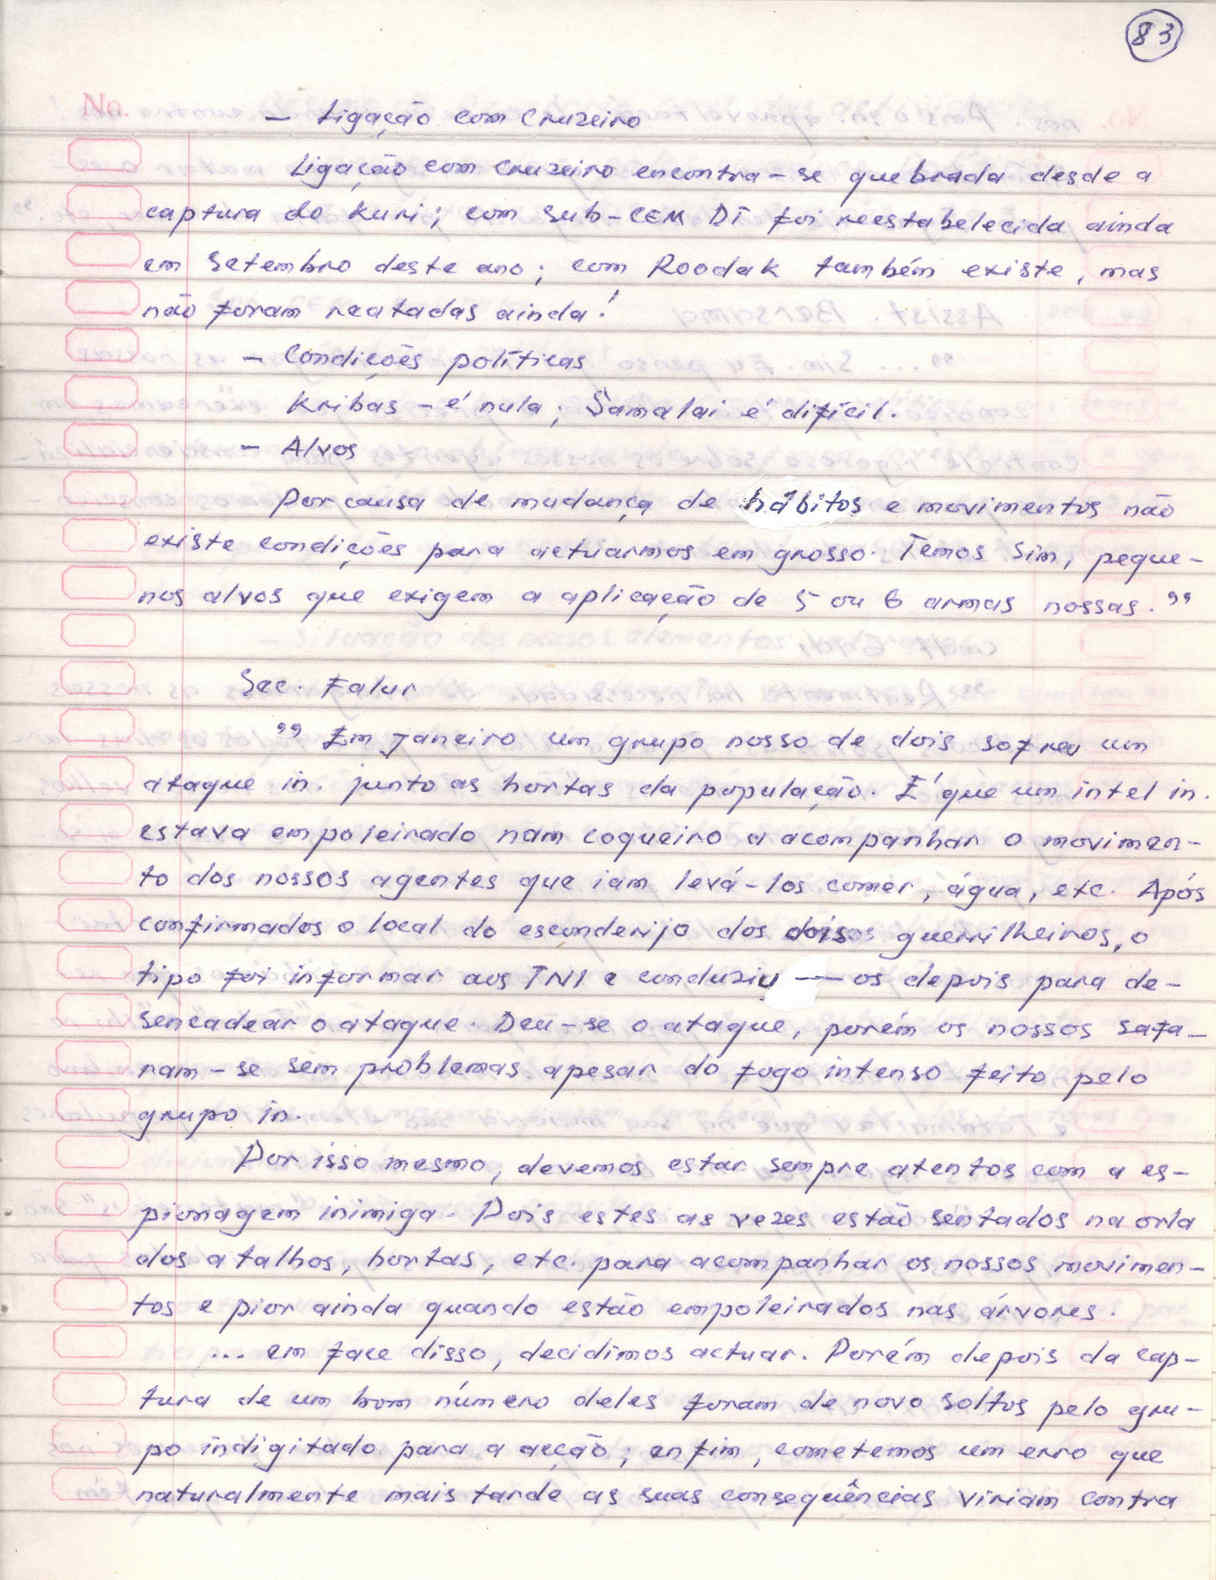 83
No.
- Ligação com Cruzeiro
Ligação com Cruzeiro encontra-se quebrada desde a
captura do Kuri; com Sub-CEM DI foi reestabelecida ainda
em Setembro deste ano; com Roodak também existe, mas
não foram reatadas ainda!
- Condições políticas
Kribas - é nula; Samalai é difícil.
- Alvos
Por causa de mudança de hábitos e movimentos não
existe condições para actuarmos em grosso. Temos sim, peque-
nos alvos que exigem a aplicação de 5 ou 6 armas nossas."
Sec. Falur
" Em Janeiro um grupo nosso de dois sofreu um
ataque in. junto as hortas da população. É que um intel in.
estava empoleirado nam coqueiro a acompanhar o movimen-
to dos nossos agentes que iam levá-los comer, água, etc. Após
confirmados o local do esconderijo dos dois guerrilheiros, o
tipo foi informar aos TNI e conduziu - os depois para de-
sencadear o ataque. Deu-se o ataque, porém os nossos safa-
ram-se sem problemas apesar do fogo intenso feito pelo
grupo in.
Por isso mesmo, devemos estar sempre atentos com a es-
pionagem inimiga. Pois estes as vezes estão sentados na orla
dos atalhos, hortas, etc. para acompanhar os nossos movimen-
tos e pior ainda quando estão empoleirados nas árvores.
... em face disso, decidimos actuar. Porém depois da cap-
tura de um bom número deles foram de novo soltos pelo gru-
po indigitado para a acção; enfim, cometemos um erro que
naturalmente mais tarde as suas consequências viriam contra